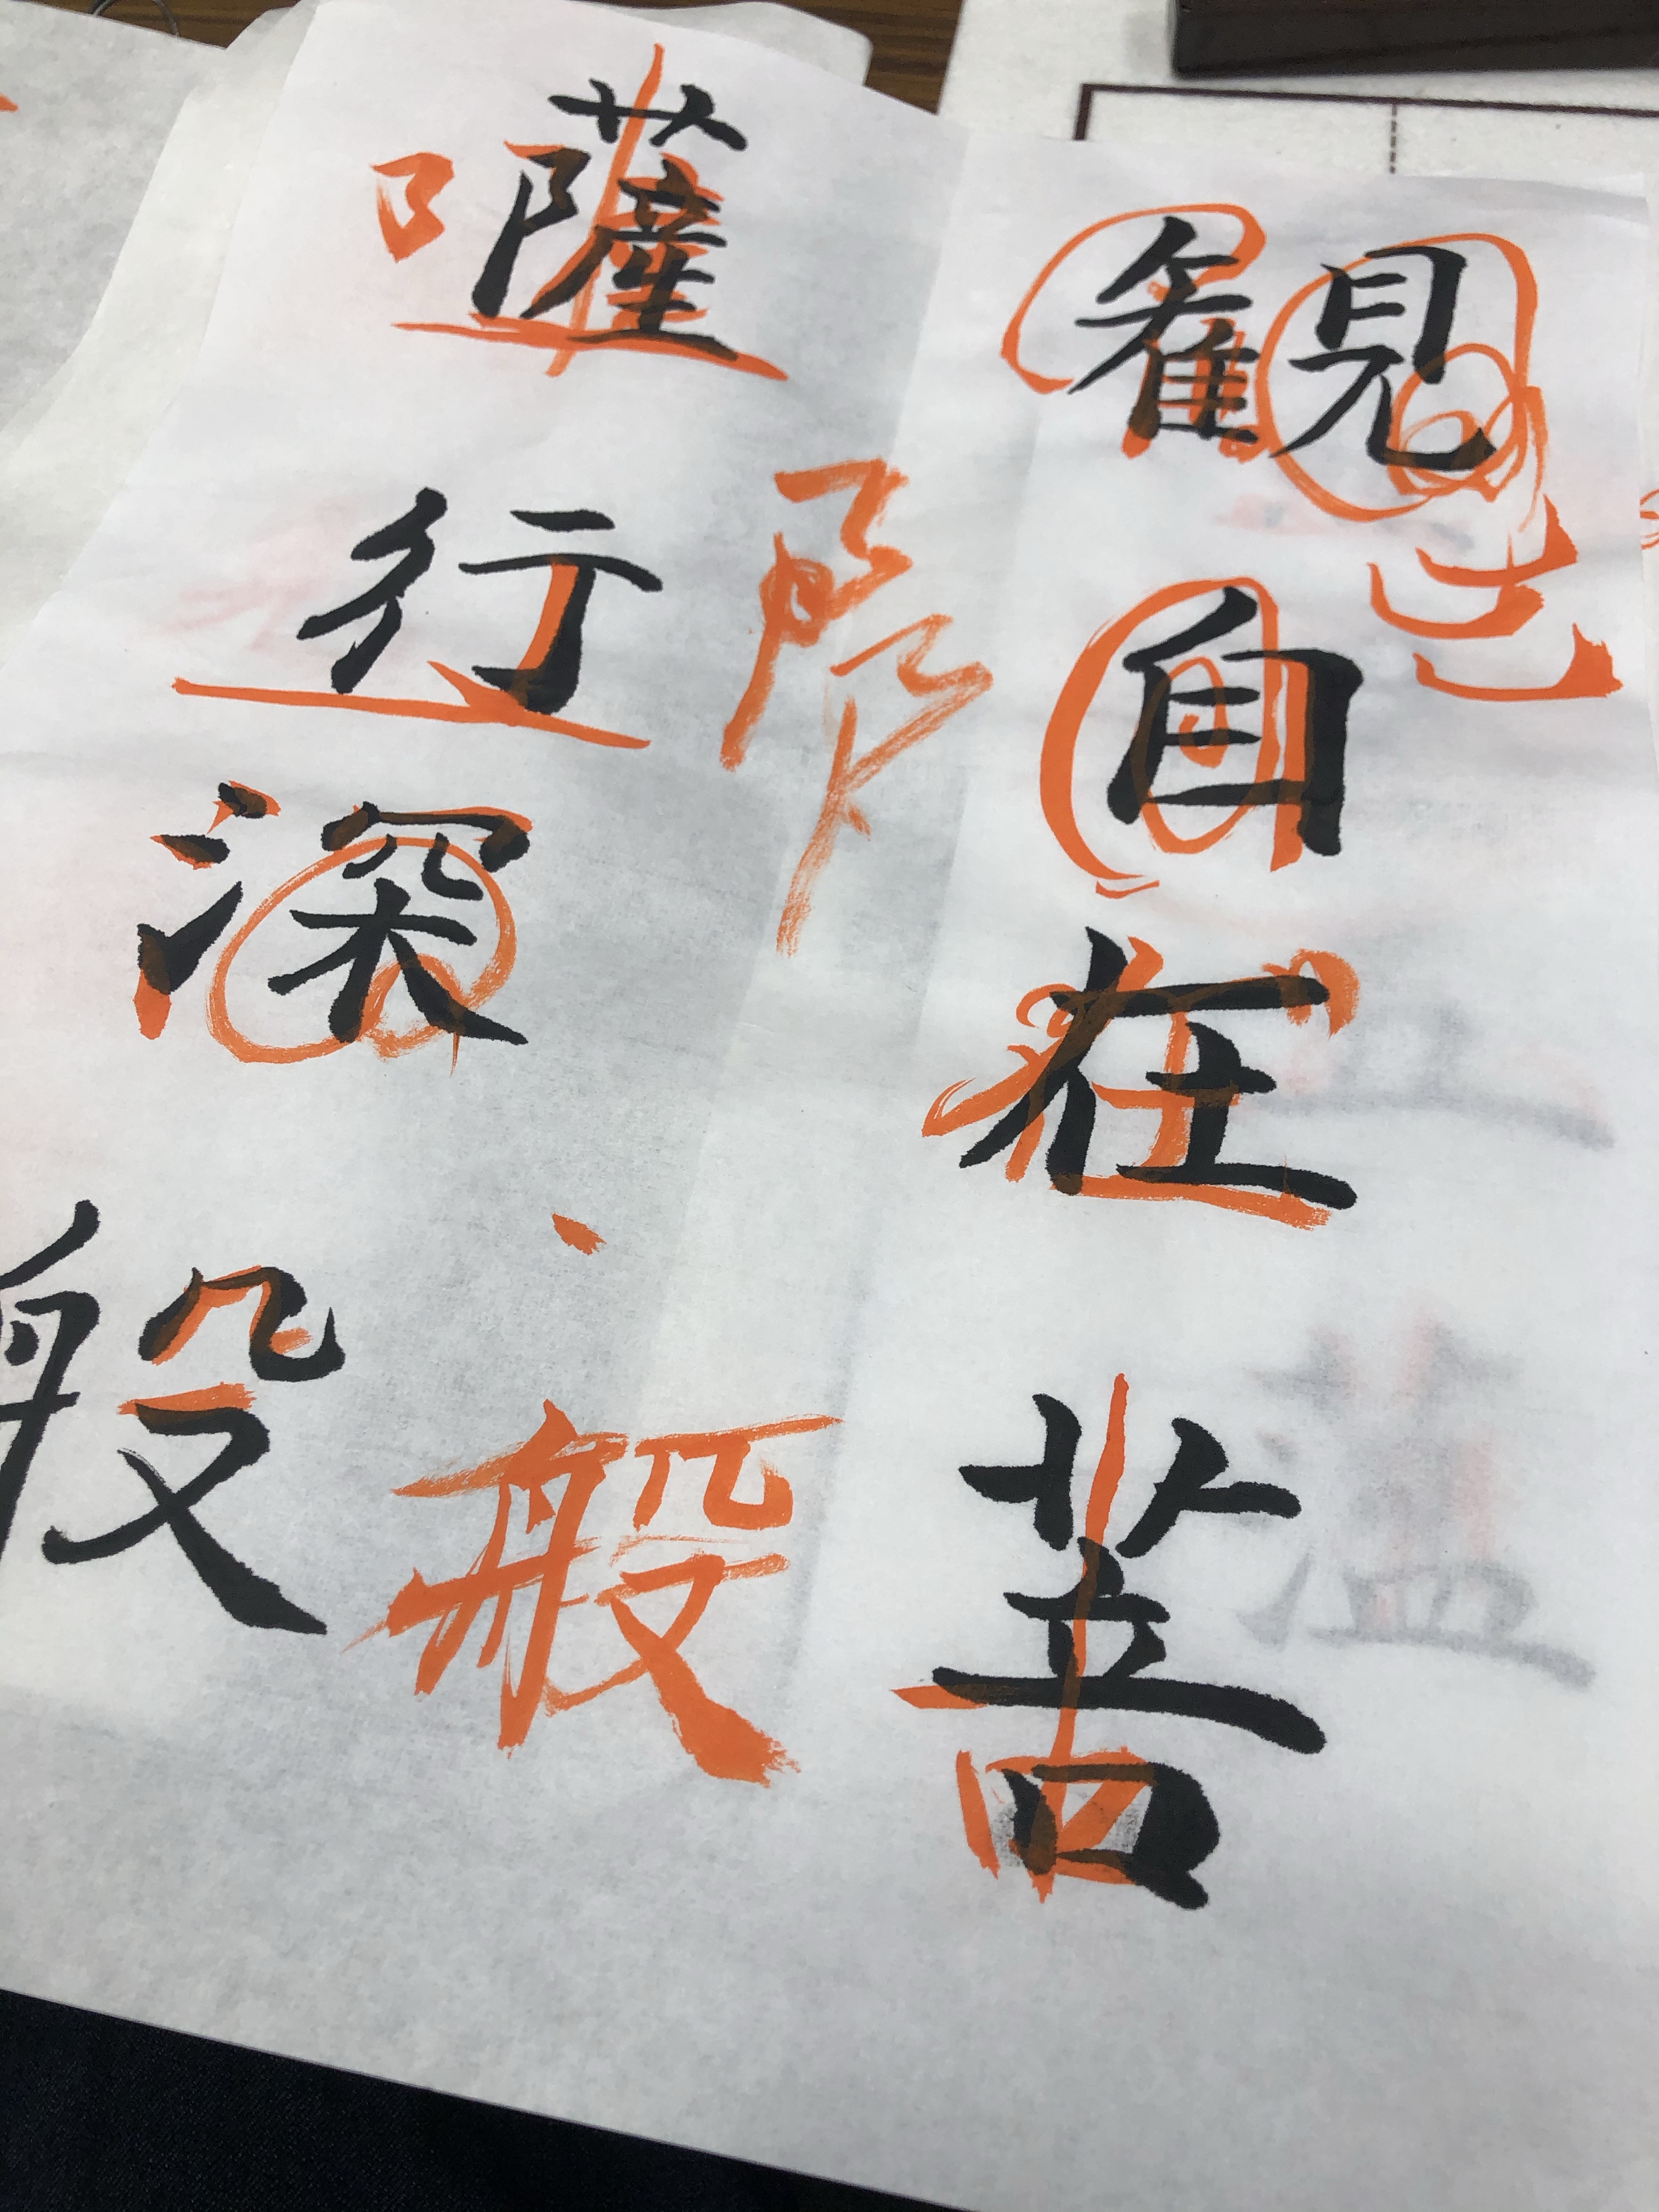 観自在菩
般
薩行深般